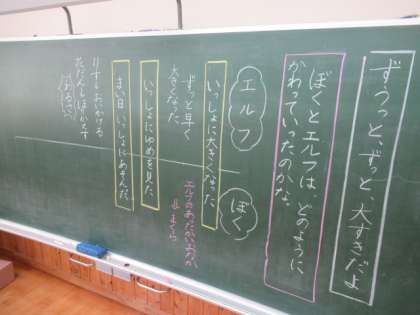 ずうっと、ずっと、大すきだよ
ぼくとエルフは、どのように
かわっていったのかな。
エルフ
ぼく
いっしょに大きくなった
ずっと早く
大きくなった
エルフのあたたかいおなか
まくら
いっしょにゆめを見た。
まい日いっしょにあそんだ。
りすをおいかける